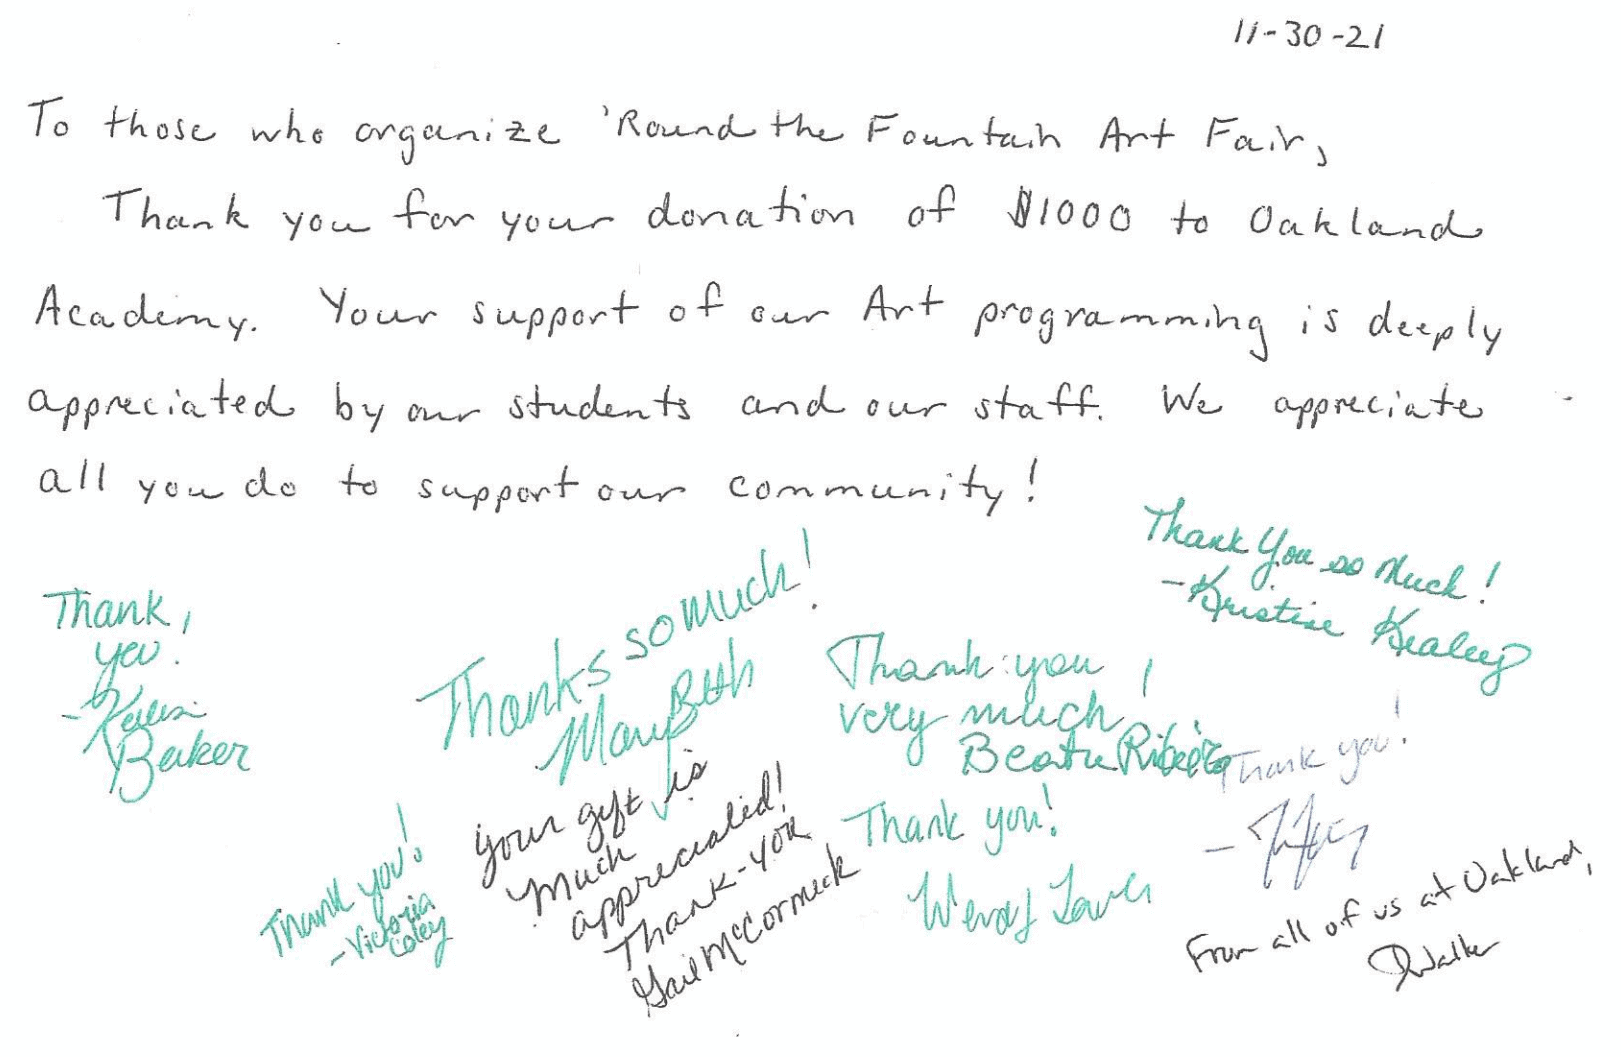 11-30-21
To those who organize 'Round the Fountain Art Fair,
Thank you for your donation of $1000 to Oakland
Academy. Your support of our Art programming is deeply
appreciated by our students and our staff. We appreciate
all you do to support our community!
Thank You so Much!
- Kristine Kealey
Thank
you.
Baker
Thanks so much!
Mary Beth
Thank you
very much!
Ribeiro
Thank you!
Thank you!
- Victoria
Coley
Your gift is
much
appreciated!
Thank-you
Gail McCormick
Thank you!
Wendy
From all of us at Oakland,
Walker